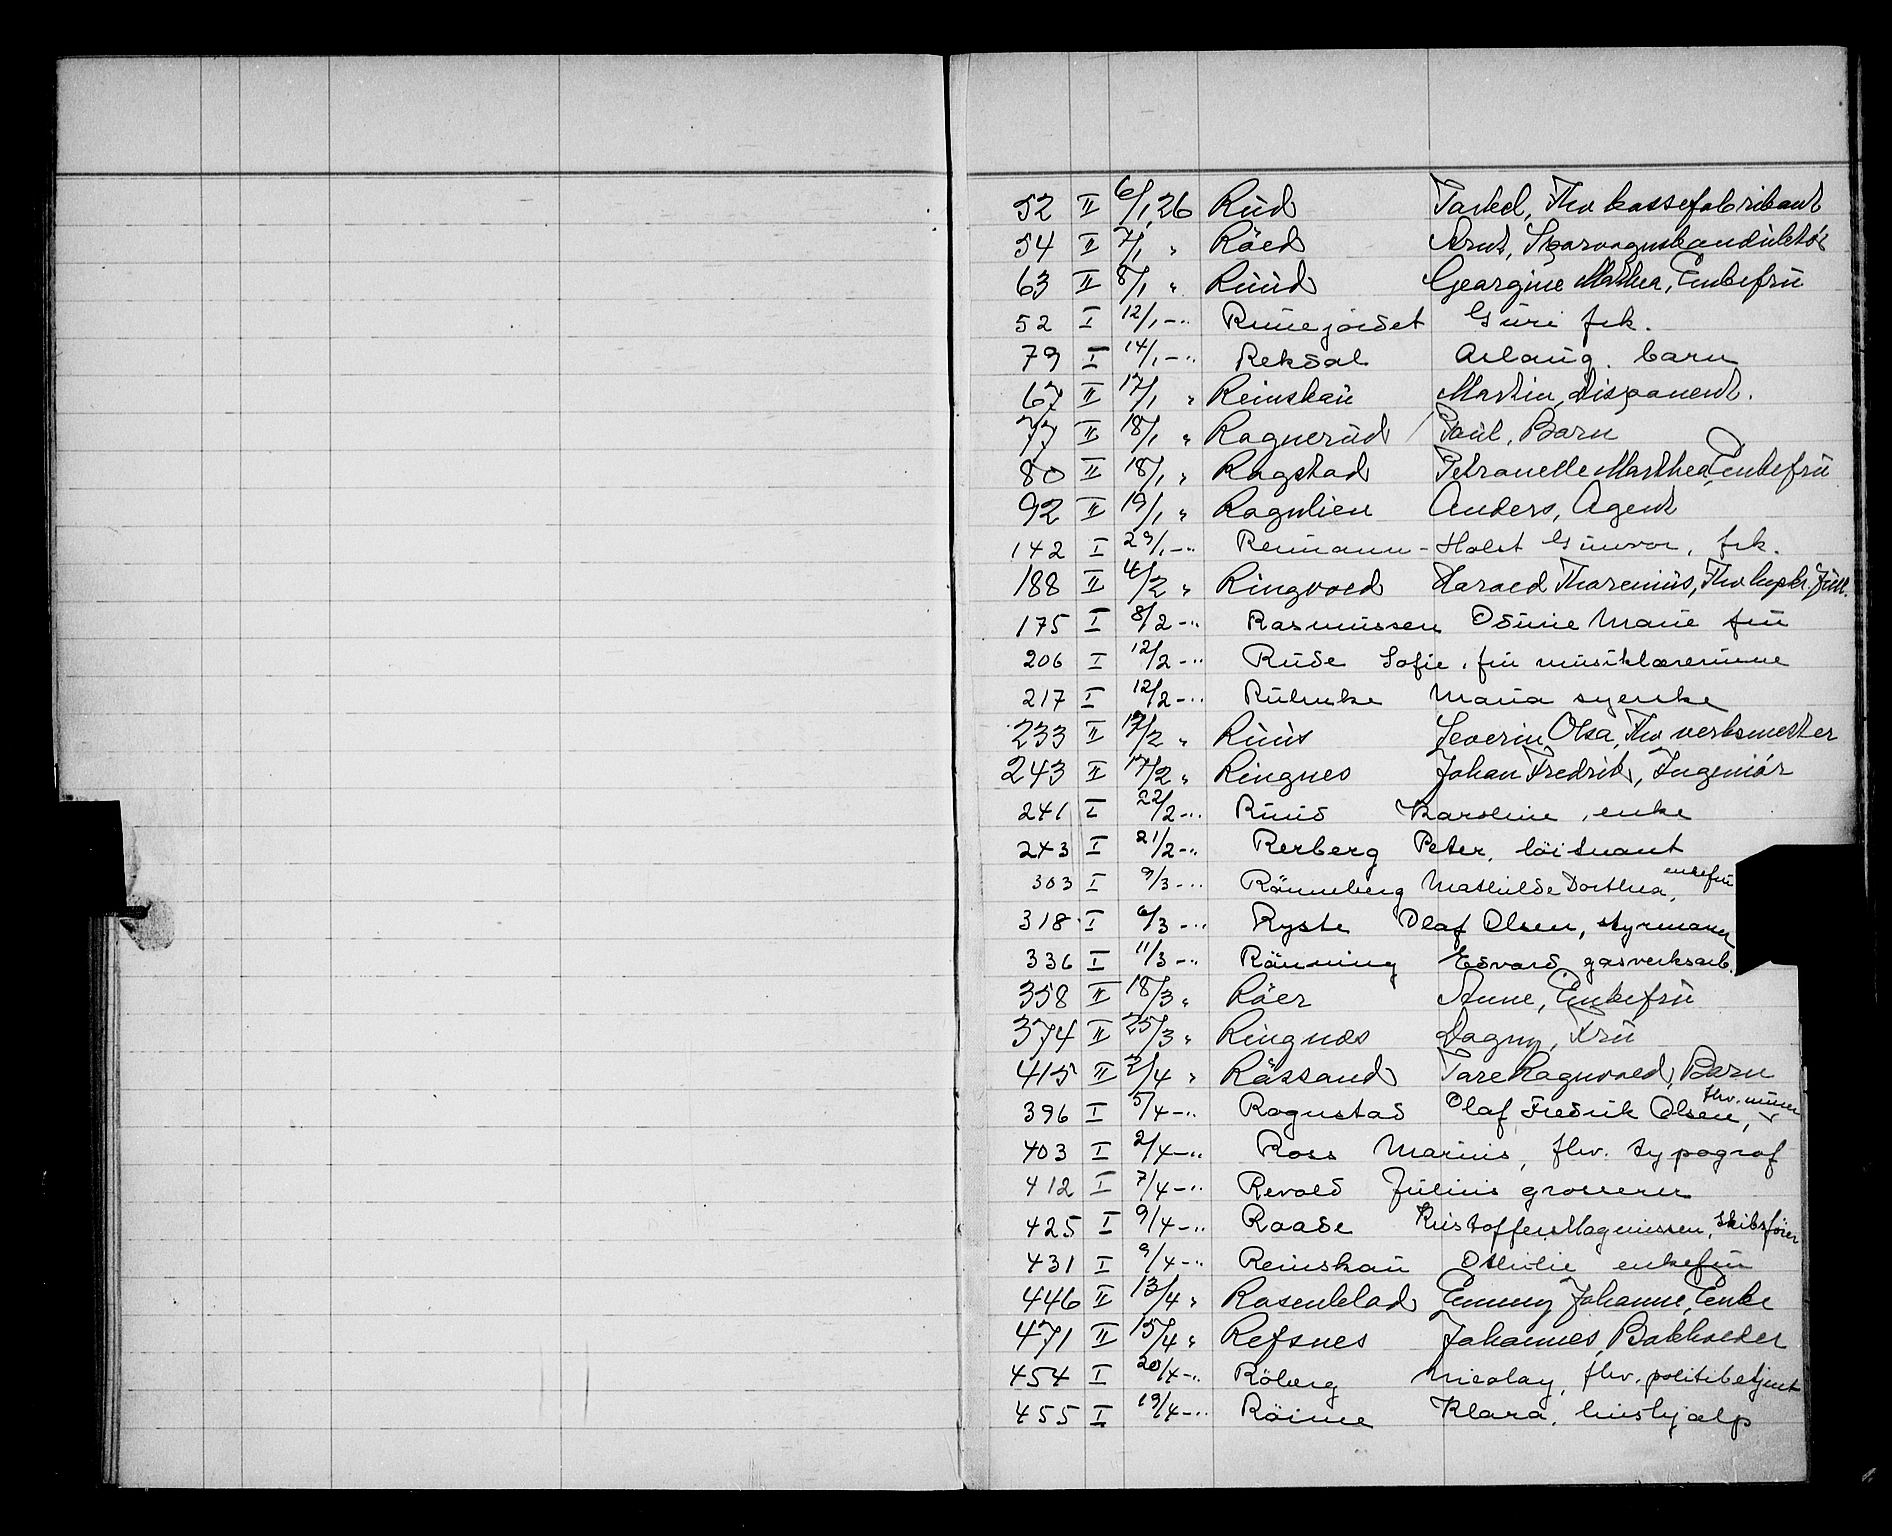 52 II 6/1 26 Rud Torkel, Fhv kassefabrikant
54 II 7/1 " Röed Arnt, Sporvognskonduktör
63 II 8/1 " Ruud Georgine Mathea, Enkefru
52 I 12/1 -" Runejordet Guri frk.
79 I 14/1 -" Rekdal Aslaug. barn
67 II 17/1 " Reinskau Martin, disponent.
77 II 18/1 " Rognerud Poul, Barn
80 II 18/1 " Rogstad Petronelle Marthea, Enkefru
92 II 19/1 " Rognlien Anders, Agent
142 I 29/1 -" Reimann - Holst Gunvor, frk.
188 II 4/2 " Ringvold Harald Thorenius, Fhv
175 I 8/2 -" Rasmussen Odinie Marie fru
206 I 12/2 -" Rude Sofie, fru musiklærerinne
217 I 12/2 -" Rulnke Maria syerske
233 II 17/2 " Ruus Severin Olsa, Fhv verksmester
243 II 17/2 " Ringnes Johan Fredrik, Ingeniör
241 I 22/2 -" Ruud Karoline, enke
243 I 21/2 -" Rerberg Peter, löitnant
303 I 9/3 -" Rönneberg Mathilde Dorthea, enkefru
318 I 6/3 -" Ryste Olaf Olsen, styrmann
336 I 11/3 -" Rönning Edvard, gasverksarb.
358 II 18/3 " Röer Anne, Enkefru
374 II 25/3 " Ringnæs Dagny, Fru
415 II 2/4 " Rössand Tore Ragnvald, Barn
396 I 5/4 -" Rognstad Olaf Fredrik Olsen, fhv. murer
403 I 2/4 -" Ross Marius, fhv. typograf
412 I 7/4 -" Revold Julius grosserer
425 I 9/4 -" Raade Kristoffer Magnussen, skibsförer
431 I 9/4 -" Reinskau Othilie enkefru
446 II 13/4 " Rosenblad Emmy Johanne, Enke
471 II 15/4 " Refsnes Johannes, Bokholder
454 I 20/4 -" Röberg Nicolay, fhv. politibetjent
455 I 19/4 -" Röine Klara. hushjælp